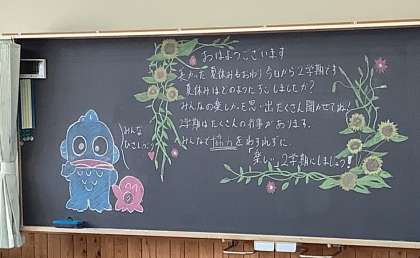 おはようございます
長かった夏休みもおわり今日から2学期です
夏休みはどのようにすごしましたか?
みんなの楽しかった思い出たくさん聞かせてね!
2学期はたくさんの行事があります。
みんなで協力をわすれずに
「楽しい」2学期にしましょう!
みんな
ひさしぶり